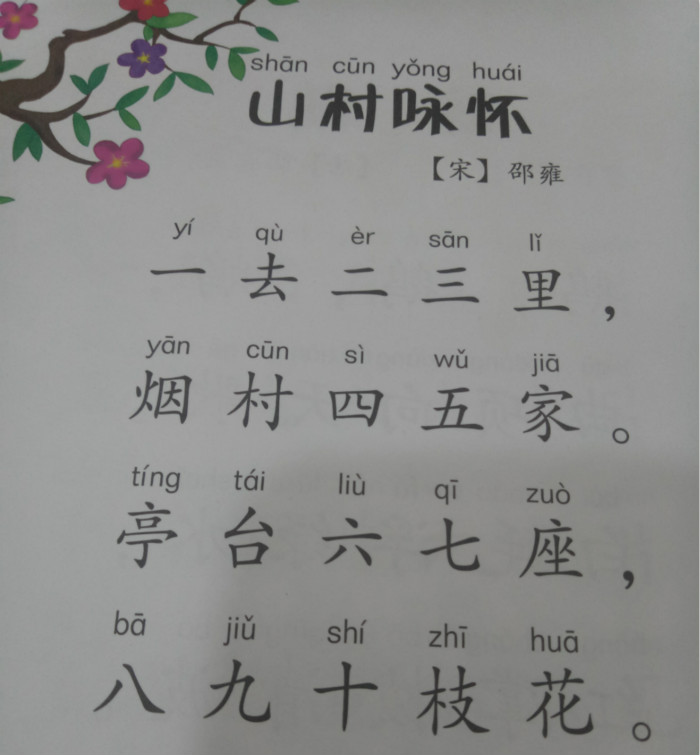 shān cūn yǒng huái
山村咏怀
【宋】邵雍
yí qù èr sān lǐ
一去二三里，
yān cūn sì wǔ jiā
烟村四五家。
tíng tái liù qī zuò
亭台六七座，
bā jiǔ shí zhī huā
八九十枝花。